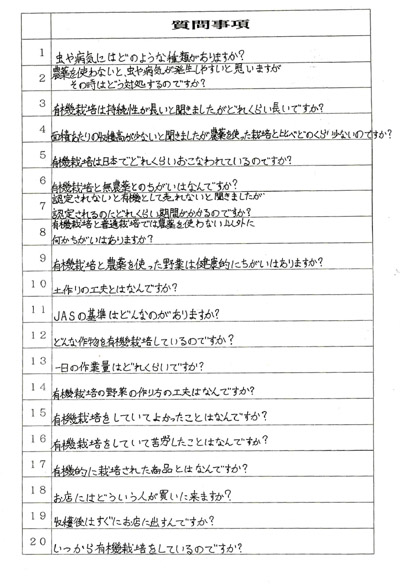 質問事項
1 虫や病気にはどのような種類がありますか?
2 農薬を使わないと、虫や病気が発生しやすいと思いますが
その時はどう対処するのですか?
3 有機栽培は持続性が長いと聞きましたがどれくらい長いですか?
4 面積あたりの収穫高が少ないと聞きましたが農薬を使った栽培と比べどのくらい少ないのですか?
5 有機栽培は日本でどれくらいおこなわれているのですか?
6 有機栽培と無農薬とのちがいはなんですか?
7 認定されないと有機として売れないと聞きましたが
認定されるのにどれくらい期間がかかるのですか?
8 有機栽培と普通栽培では農薬を使わない以外に
何かちがいはありますか?
9 有機栽培と農薬を使った野菜は健康的にちがいはありますか?
10 土作りの工夫とはなんですか?
11 JASの基準はどんなのがありますか?
12 どんな作物を有機栽培しているのですか?
13 一日の作業量はどれくらいですか?
14 有機栽培の野菜の作り方の工夫はなんですか?
15 有機栽培をしていてよかったことはなんですか?
16 有機栽培をしていて苦労したことはなんですか?
17 有機的に栽培された商品とはなんですか?
18 お店にはどういう人が買いに来ますか?
19 収穫後はすぐにお店に出すんですか?
20 いつから有機栽培をしているのですか?